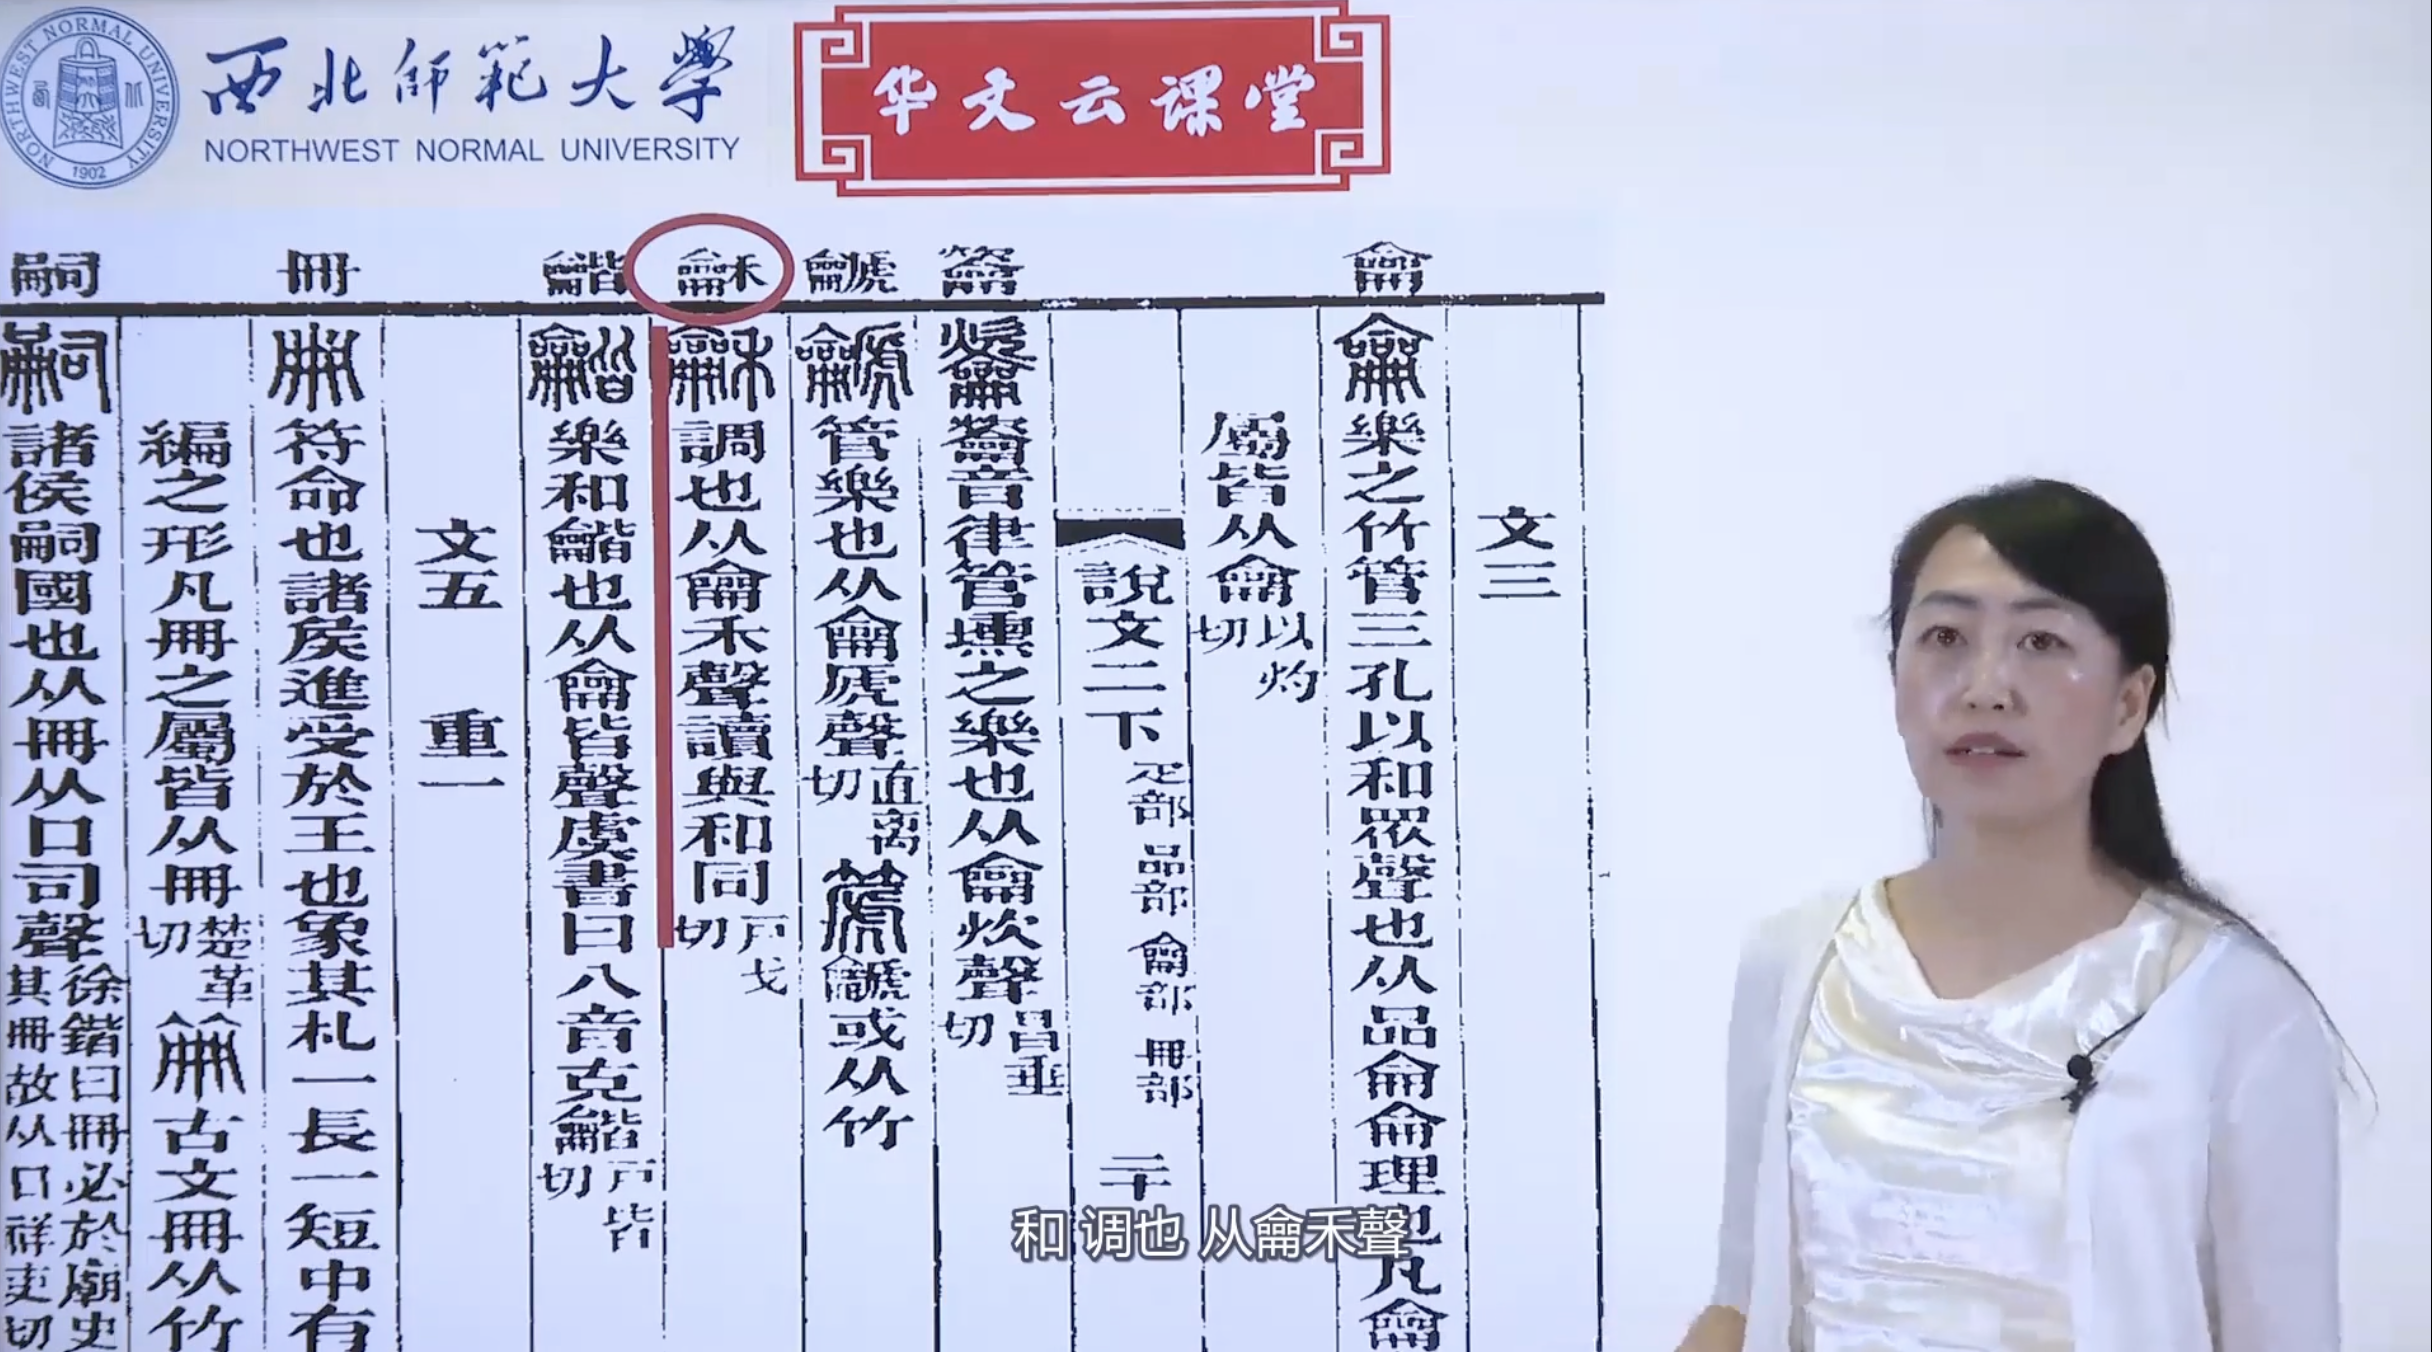 NORTHWEST NORMAL UNIVERSITY
1902
西北師範大學
NORTHWEST NORMAL UNIVERSITY
华文云课堂
龠 䶴 䶵 龢 龤 冊 嗣
文三
龠 樂之竹管三孔以和眾聲也从品侖侖理也凡龠
屬皆从龠以灼切
說文二下 疋部 品部 龠部 冊部 二十
䶴 䶴音律管壎之樂也从龠炊聲昌垂切
䶵 管樂也从龠虒聲直离切 篪 䶵或从竹
龢 調也从龠禾聲讀與和同戶戈切
龤 樂和龤也从龠皆聲虞書曰八音克龤戶皆切
文五 重一
冊 符命也諸矦進受於王也象其札一長一短中有
編之形凡冊之屬皆从冊楚革切 笧 古文冊从竹
嗣 諸侯嗣國也从冊从口司聲徐鍇曰冊必於廟史其冊故从口祥吏切
和 调也 从龠禾聲